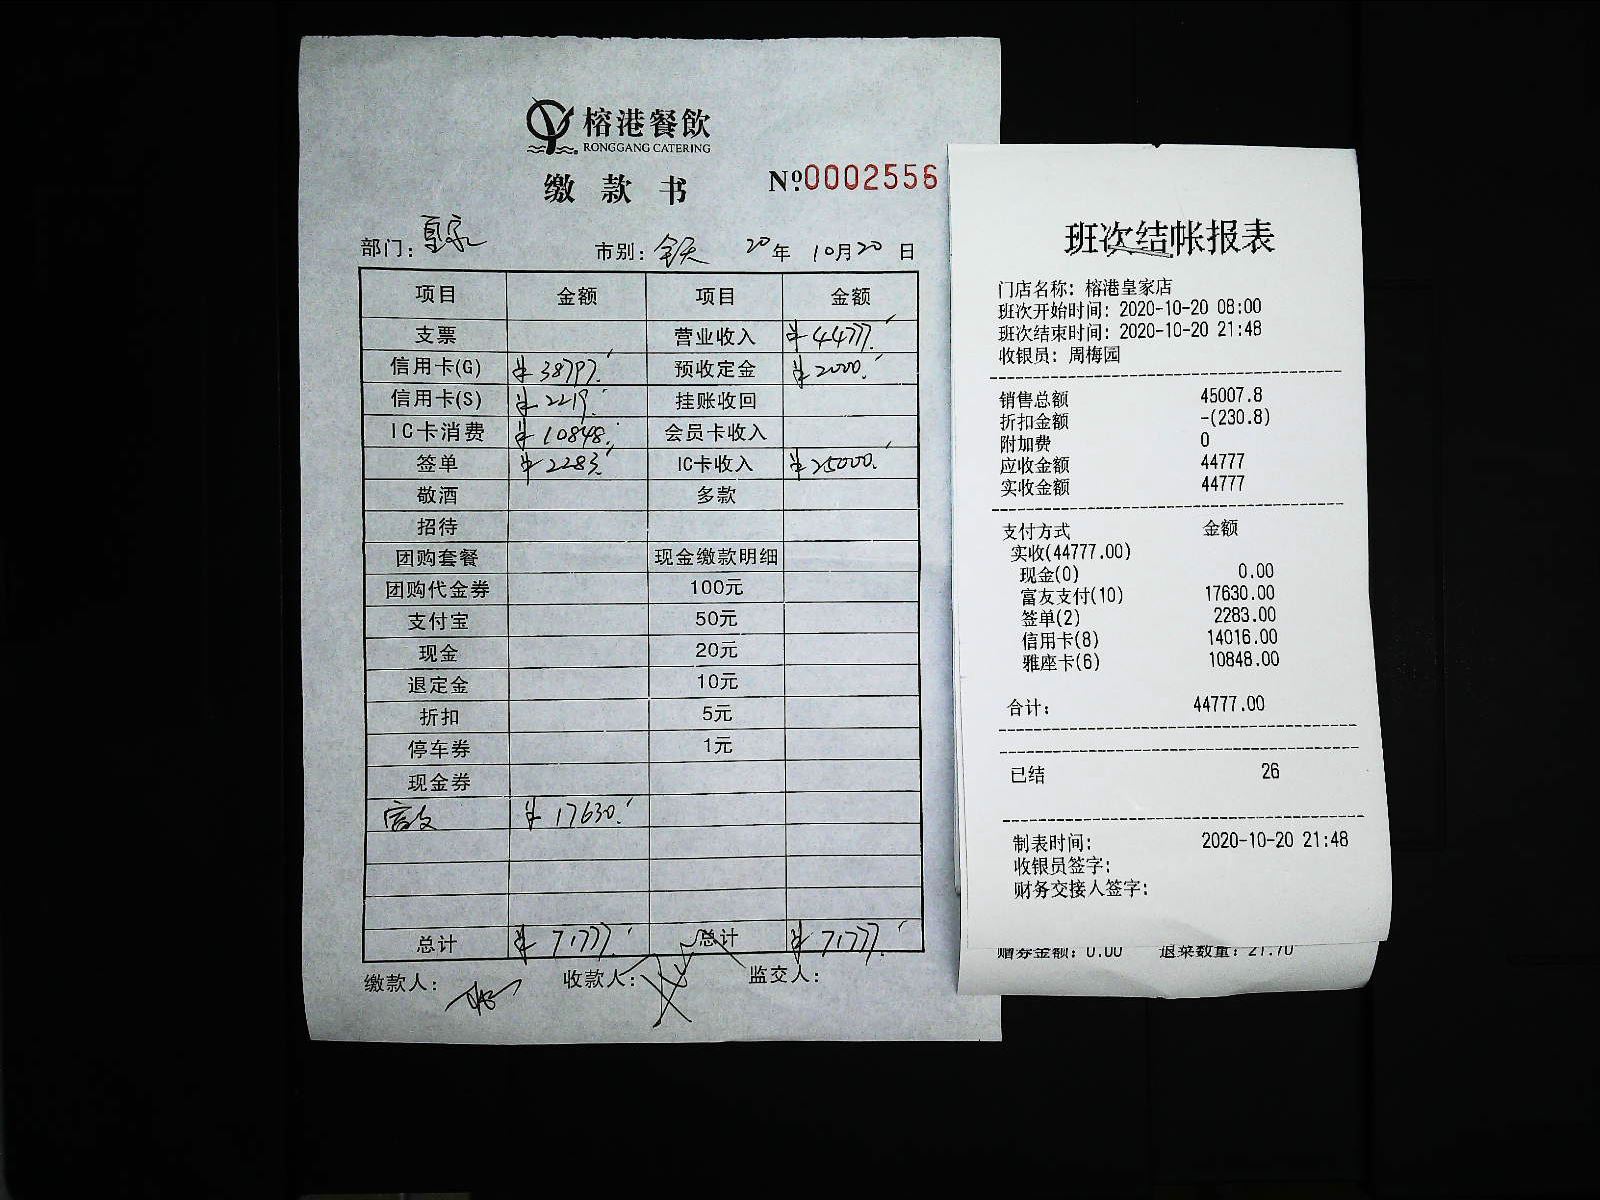 榕港餐飲
RONGGANG CATERING
缴款书
№0002556
部门: 皇家 市别: 全天 20年 10月20日
项目 金额 项目 金额
支票 营业收入 ¥44777.
信用卡(G) ¥38797. 预收定金 ¥2000.
信用卡(S) ¥2219. 挂账收回
IC卡消费 ¥10848. 会员卡收入
签单 ¥2283. IC卡收入 ¥25000.
敬酒 多款
招待
团购套餐 现金缴款明细
团购代金券 100元
支付宝 50元
现金 20元
退定金 10元
折扣 5元
停车券 1元
现金券
富友 ¥17630.
总计 ¥71777. 总计 ¥71777.
缴款人: 收款人: 监交人:
班次结帐报表
门店名称: 榕港皇家店
班次开始时间: 2020-10-20 08:00
班次结束时间: 2020-10-20 21:48
收银员: 周梅园
销售总额 45007.8
折扣金额 -(230.8)
附加费 0
应收金额 44777
实收金额 44777
支付方式 金额
实收(44777.00)
现金(0) 0.00
富友支付(10) 17630.00
签单(2) 2283.00
信用卡(8) 14016.00
雅座卡(6) 10848.00
合计: 44777.00
已结 26
制表时间: 2020-10-20 21:48
收银员签字:
财务交接人签字:
赠券金额: 0.00 退菜数量: 21.70